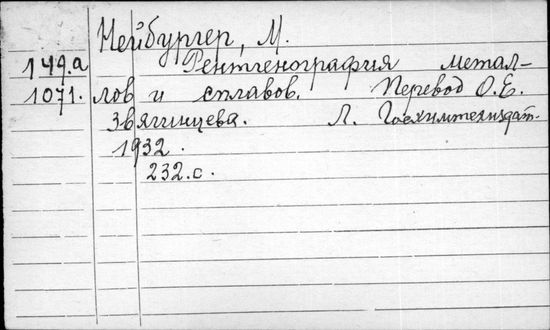 Нейбургер, М.
149.а Рентгенография метал-
1071. лов и сплавов. Перевод О.Е.
Звягинцева. Л. Госхимтехиздат.
1932.
232.с.